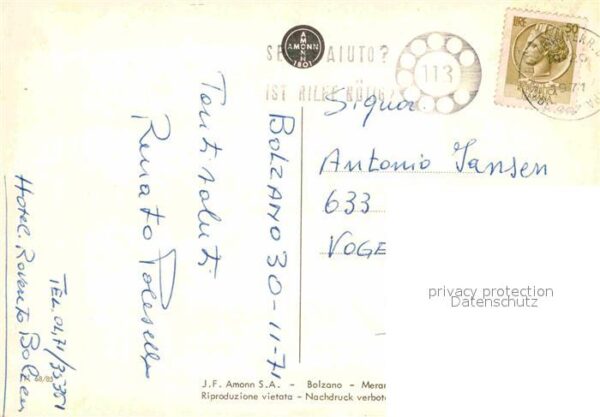 AMONN
AMONN
1801
SE AIUTO?
113
IST HILFE NÖTIG?
LIRE 50
BOLZANO 30-11-71
Tanti saluti
Renato
Hotel Bolzen
TEL. 0471/
Signor.
Antonio Jansen
633
VOGE
privacy protection
Datenschutz
68/85
J.F. Amonn S.A. - Bolzano - Meran
Riproduzione vietata - Nachdruck verbote